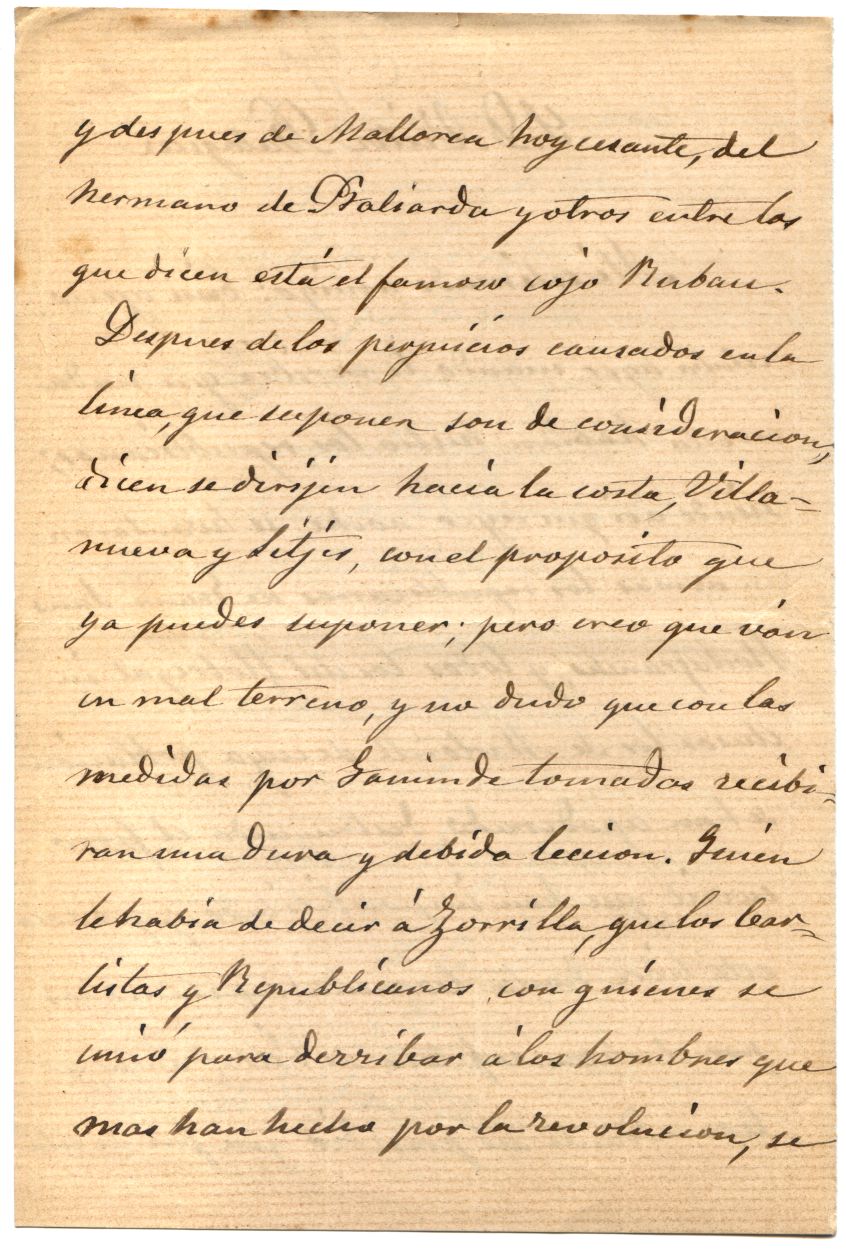 y despues de Mallorca hoy cesante, del
hermano de Baliarda y otros entre los
que dicen está el famoso cojo Rubau.
Despues de los perjuicios causados en la
linea, que suponen son de consideracion,
dicen se dirijen hacia la costa, Villa-
nueva y Sitjes, con el proposito que
ya puedes suponer; pero creo que ván
en mal terreno, y no dudo que con las
medidas por Gaminde tomadas recibi-
ran una dura y debida leccion. Quien
le habia de decir á Zorrilla, que los Car-
listas y Republicanos, con quienes se
unió para derribar á los hombres que
mas han hecho por la revolucion, se